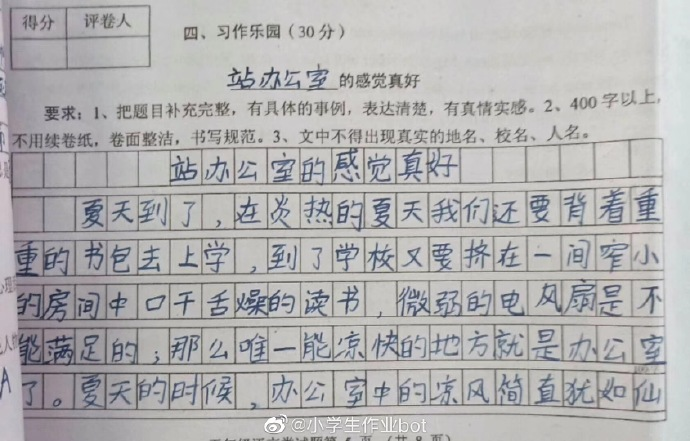 得分 评卷人
四、习作乐园（30分）
站办公室的感觉真好
要求：1、把题目补充完整，有具体的事例，表达清楚，有真情实感。2、400字以上，
不用续卷纸，卷面整洁，书写规范。3、文中不得出现真实的地名、校名、人名。
站办公室的感觉真好
夏天到了，在炎热的夏天我们还要背着重
重的书包去上学，到了学校又要挤在一间窄小
的房间中口干舌燥的读书，微弱的电风扇是不
能满足的；那么唯一能凉快的地方就是办公室
了。夏天的时候，办公室中的凉风简直犹如仙
@小学生作业bot